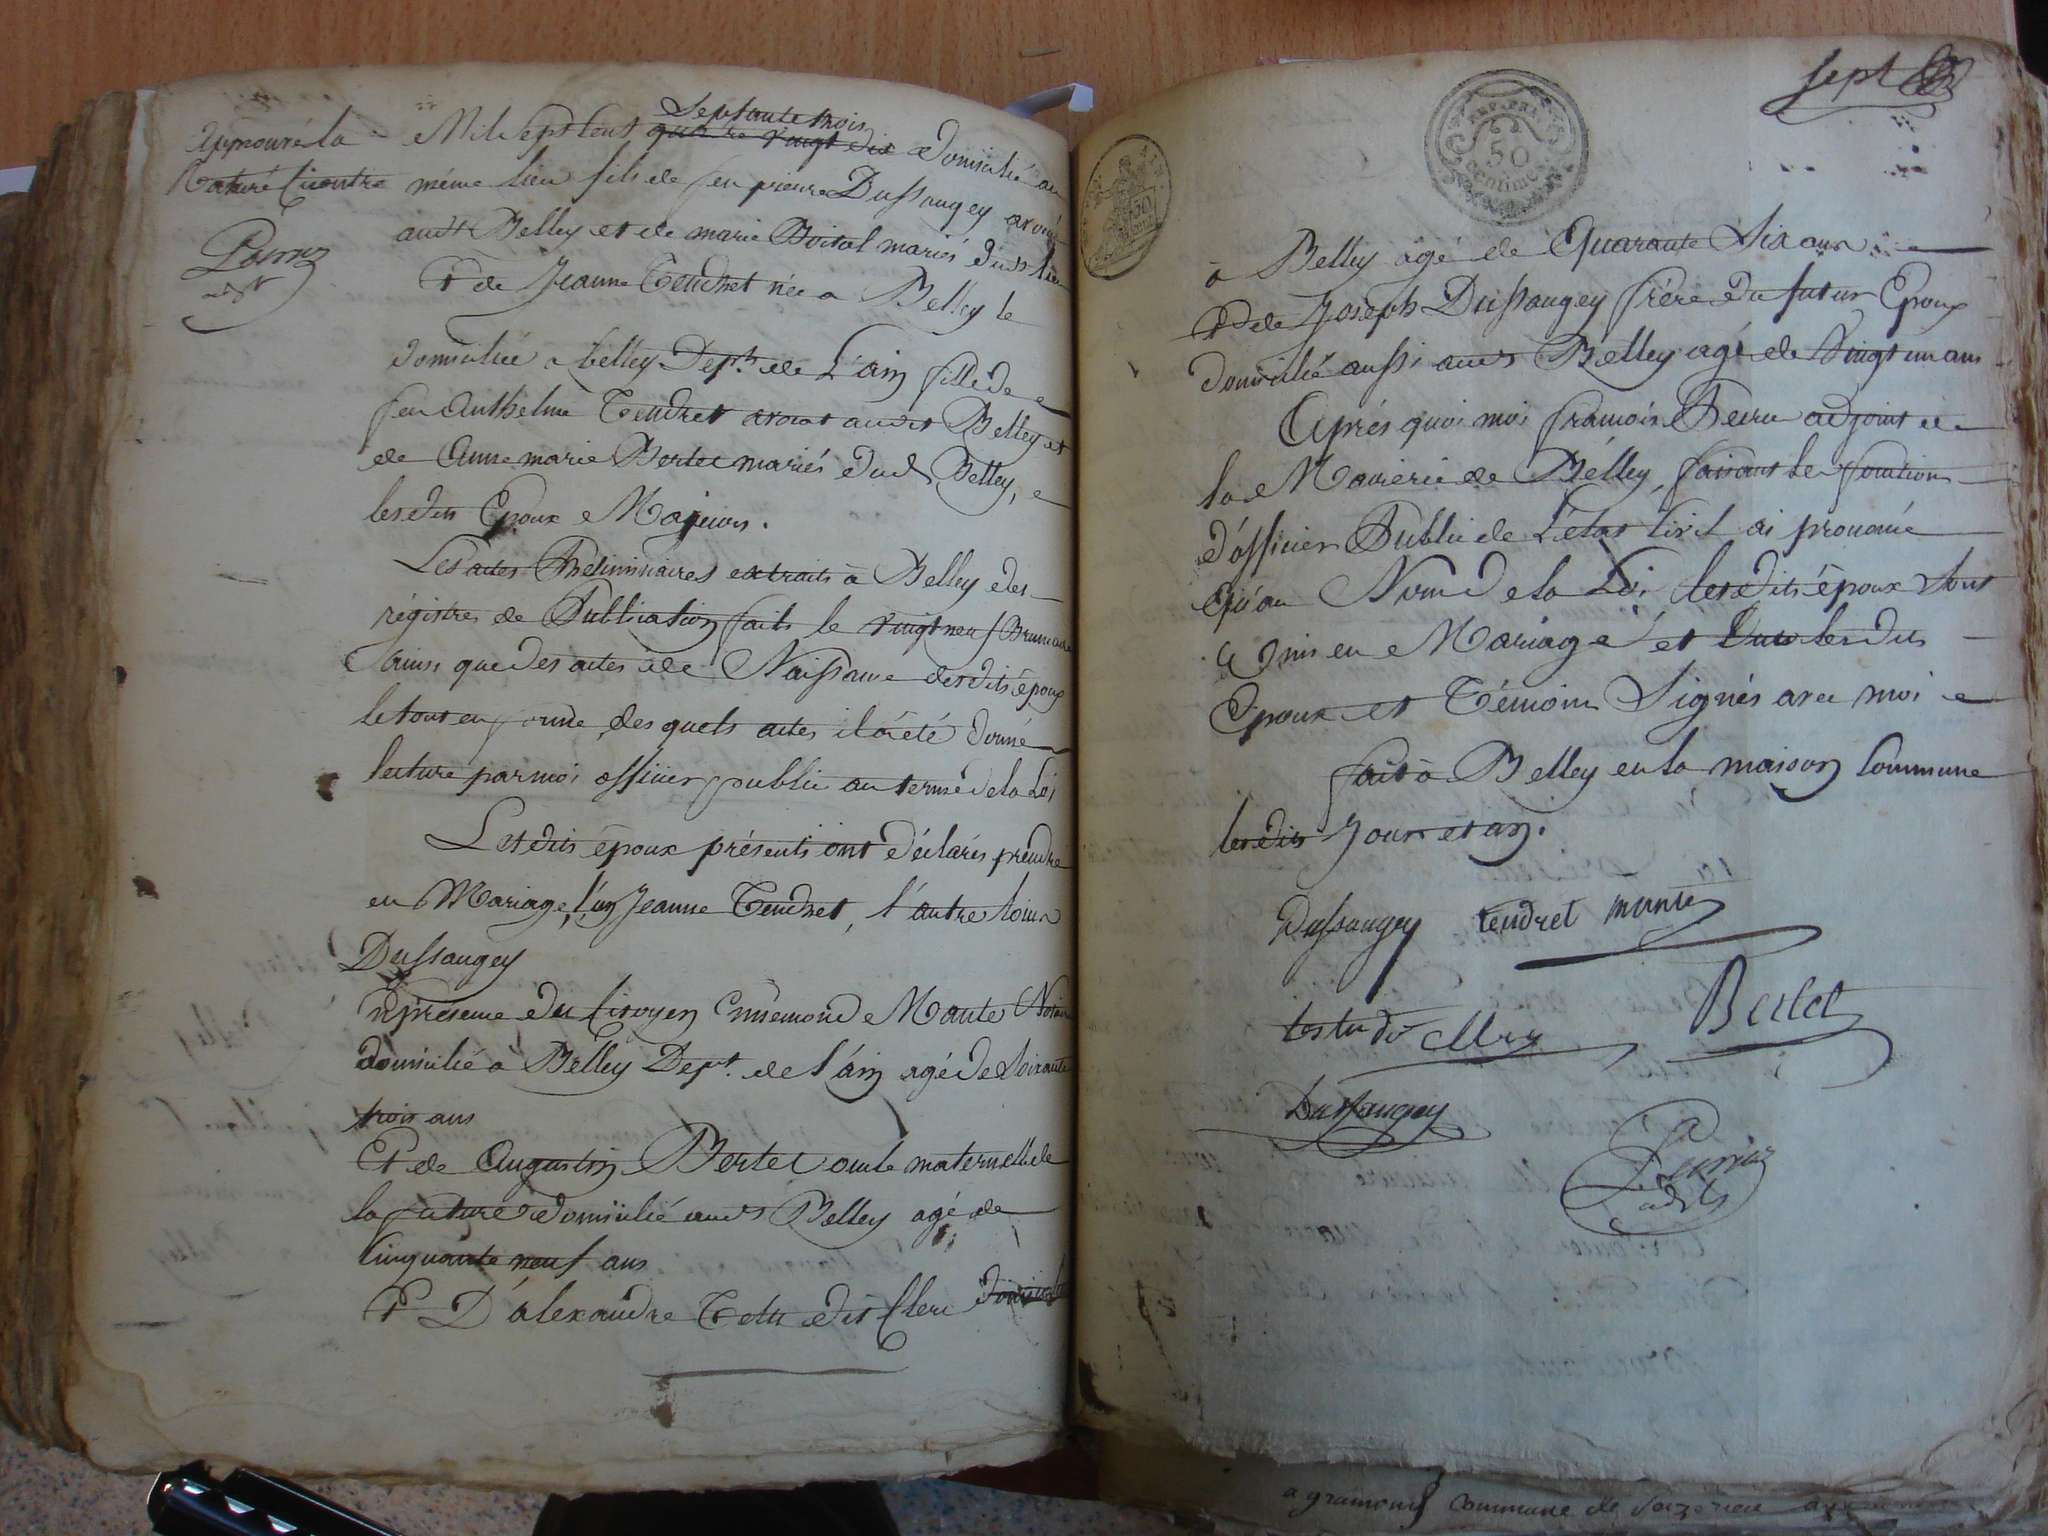 approuvé la
Raturé ci contre
adjt
Septante trois
Mil Sept Cent quatre vingt dix domicilié au
même lieu fils de feu pierre Dussaugey avoué
audt Belley et de marie Boital mariés dudt lieu
Et de Jeanne Tendret née a Belley le
domiciliée a belley Dept. de L'ain fille de
feu Anthelme Tendret avocat audit Belley et
de Anne marie Berlet mariés dud Belley,
lesdits Epoux Majeurs.
Les actes Préliminaires extraits à Belley des
régistres de Publication faits le vingt neuf Brumaire
ainsi que des actes de Naissance desdits époux
le tout en forme, des quels actes il a été donné
lecture par moi officier public au terme de la Loi
Lesdits époux présents ont déclarés prendre
en Mariage, l'un Jeanne Tendret, l'autre
Dussaugey
En présence du Citoyen Ennemond Mante Notaire
domicilié à Belley Dept. de l'ain agé de Soixante
trois ans
Et de Augustin Berlet oncle maternel de
la future domicilié audt Belley agé de
Cinquante neuf ans
Et D'alexandre Testu dit Clerc domicilié
sept
REP. FRA.
50
centimes
à Belley agé de Quarante Six ans
Et de Joseph Dussaugey frère du futur Epoux
domicilié aussi audt Belley agé de Vingt un ans
Après quoi moi françois adjoint de
la Mairerie de Belley, faisant les fonctions
d'officier Public de L'état Civil ai prononcé
Qu'au Nom de la Loi lesdits époux Sont
Unis en Mariage et lesdits
Epoux et Témoins Signés avec moi
fait à Belley en la maison Commune
lesdits Jour et an.
Dussaugey tendret mante
testu dit Clerc Berlet
Dussaugey
adjt
commune de